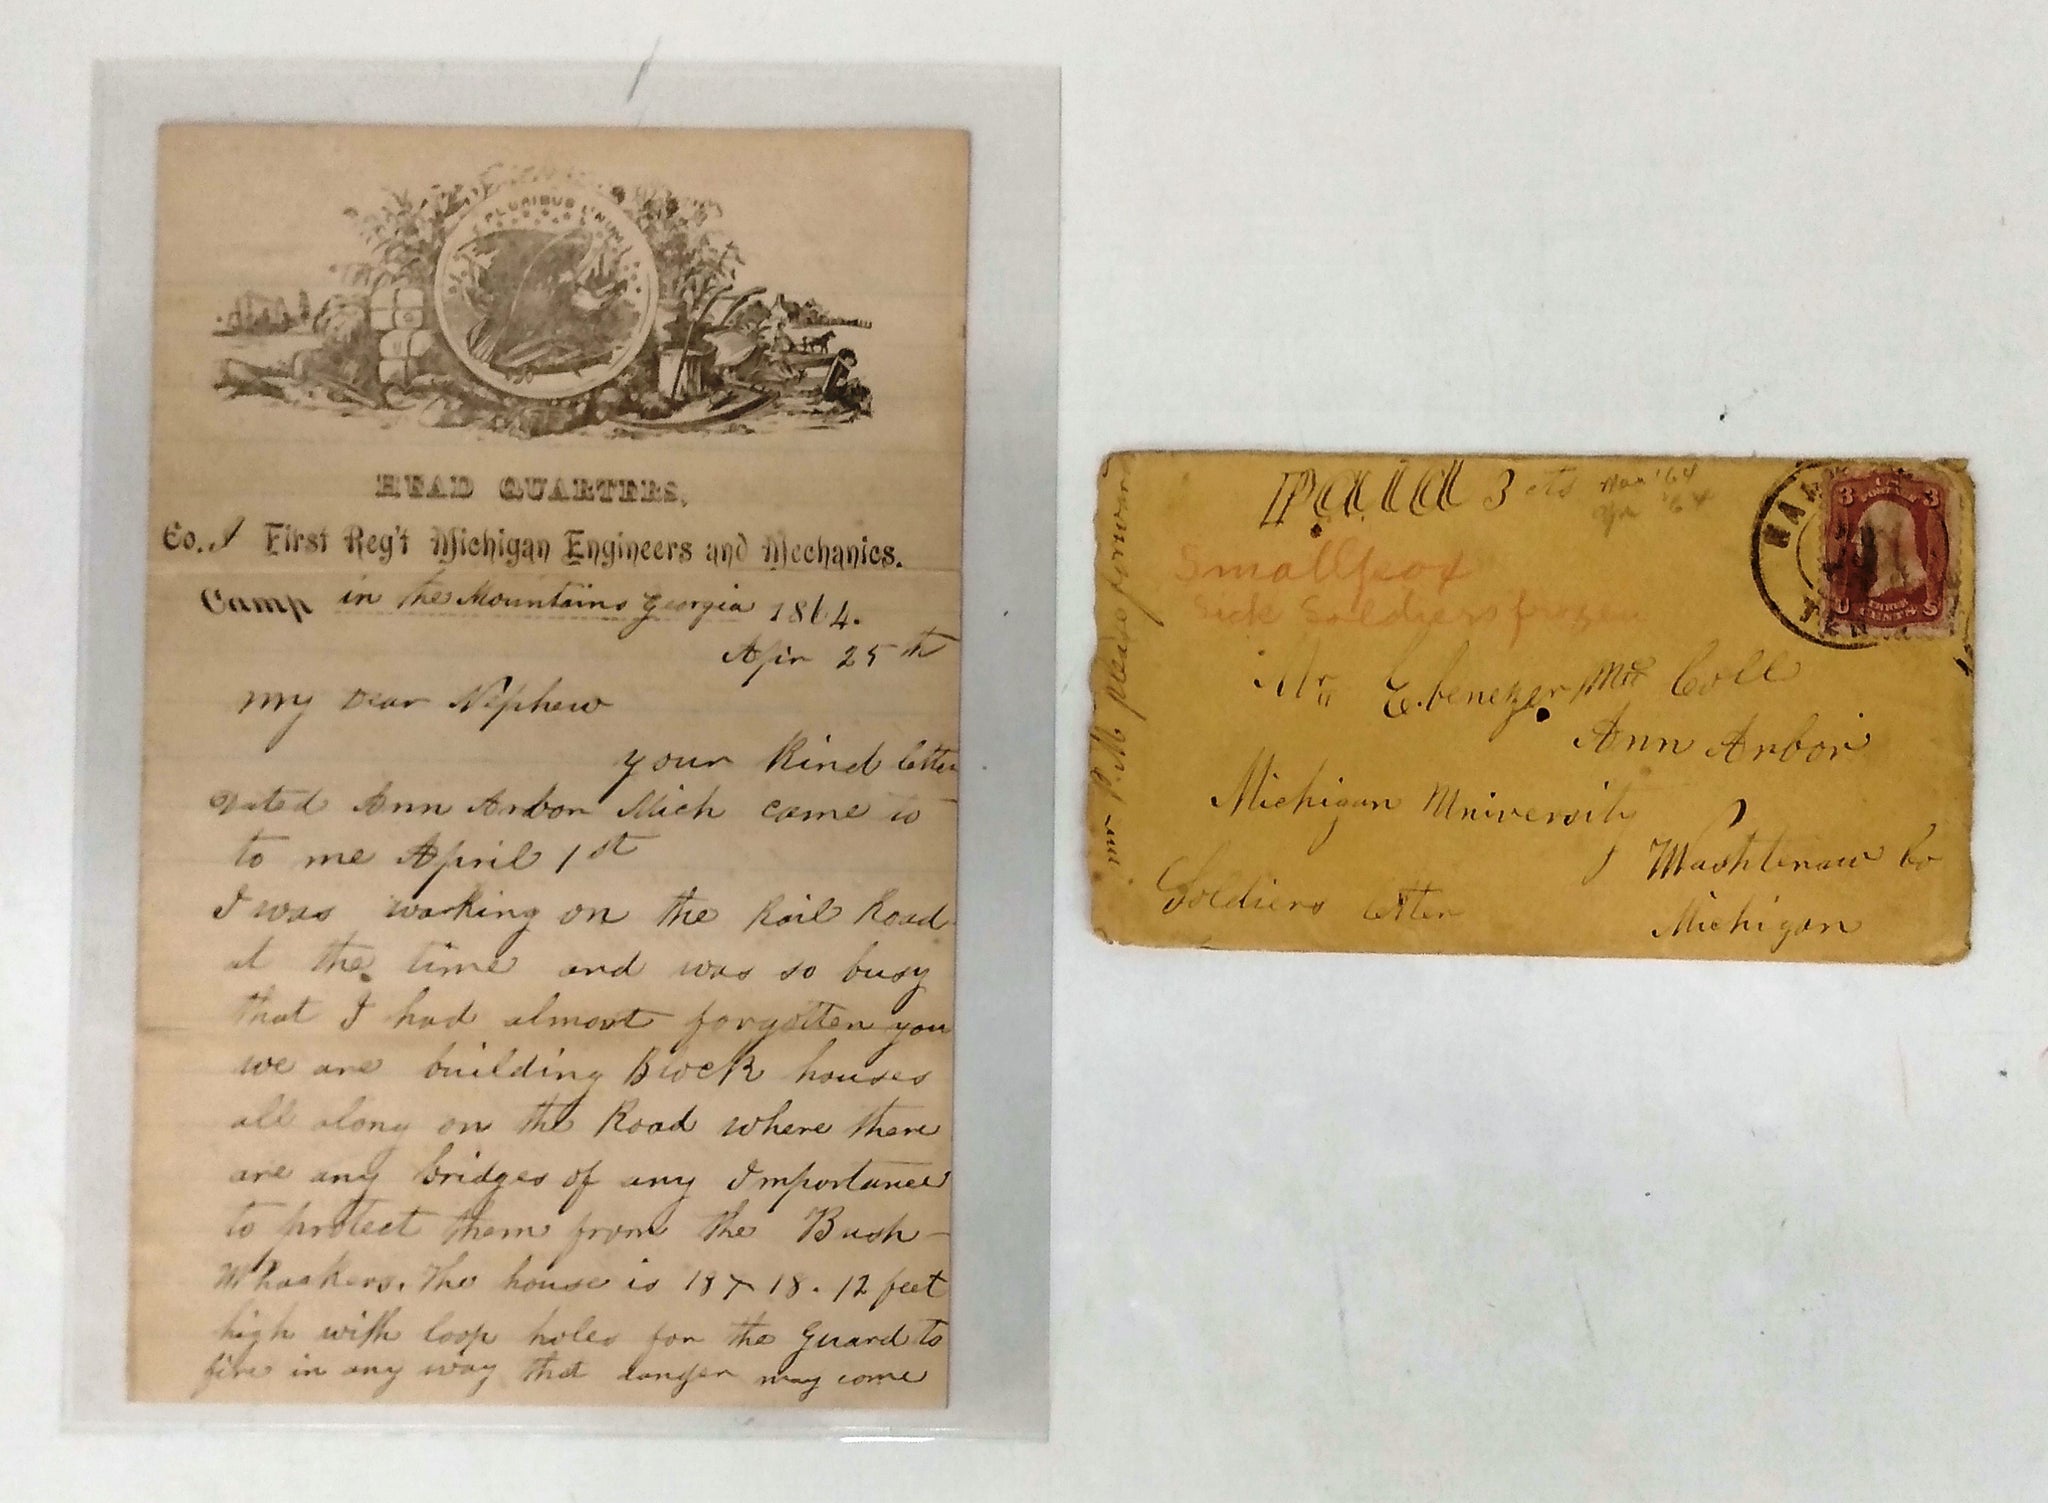 PLURIBUS UNUM
HEAD QUARTERS,
Co. I First Reg't Michigan Engineers and Mechanics.
Camp in the Mountains Georgia 1864.
Apr 25th
My Dear Nephew
your kind letter
dated Ann Arbor Mich came to
to me April 1st
I was working on the Rail Road
at the time and was so busy
that I had almost forgotten you
we are building Block houses
all along on the Road where there
are any bridges of any Importance
to protect them from the Bush-
Whackers. The house is 18 x 18. 12 feet
high with loop holes for the guard to
fire in any way that danger may come
Paid 3 cts
'64
'64
Smallpox
Sick Soldiers frozen
Mr Ebenezer Mc Coll
Ann Arbor
Michigan University
Washtenaw Co
Michigan
Soldiers letter
P.M please forward
NA
TEN
3 3
U S